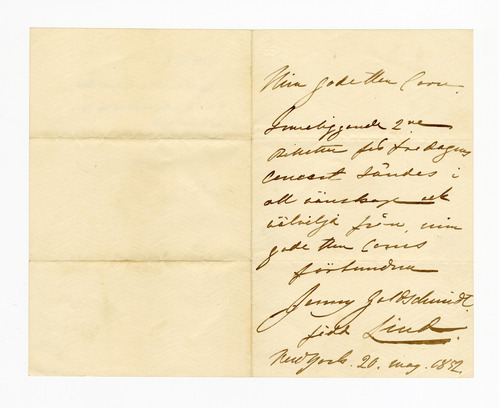 Min gode Herr Corre.
Inneliggande 2ne
Biljetter till fredagens
Concert sändes i
all vänskap och
välvilja från min
gode Herr Corres
förbundna
Jenny Goldschmidt.
född Lind.
New York. 20. may. 1852